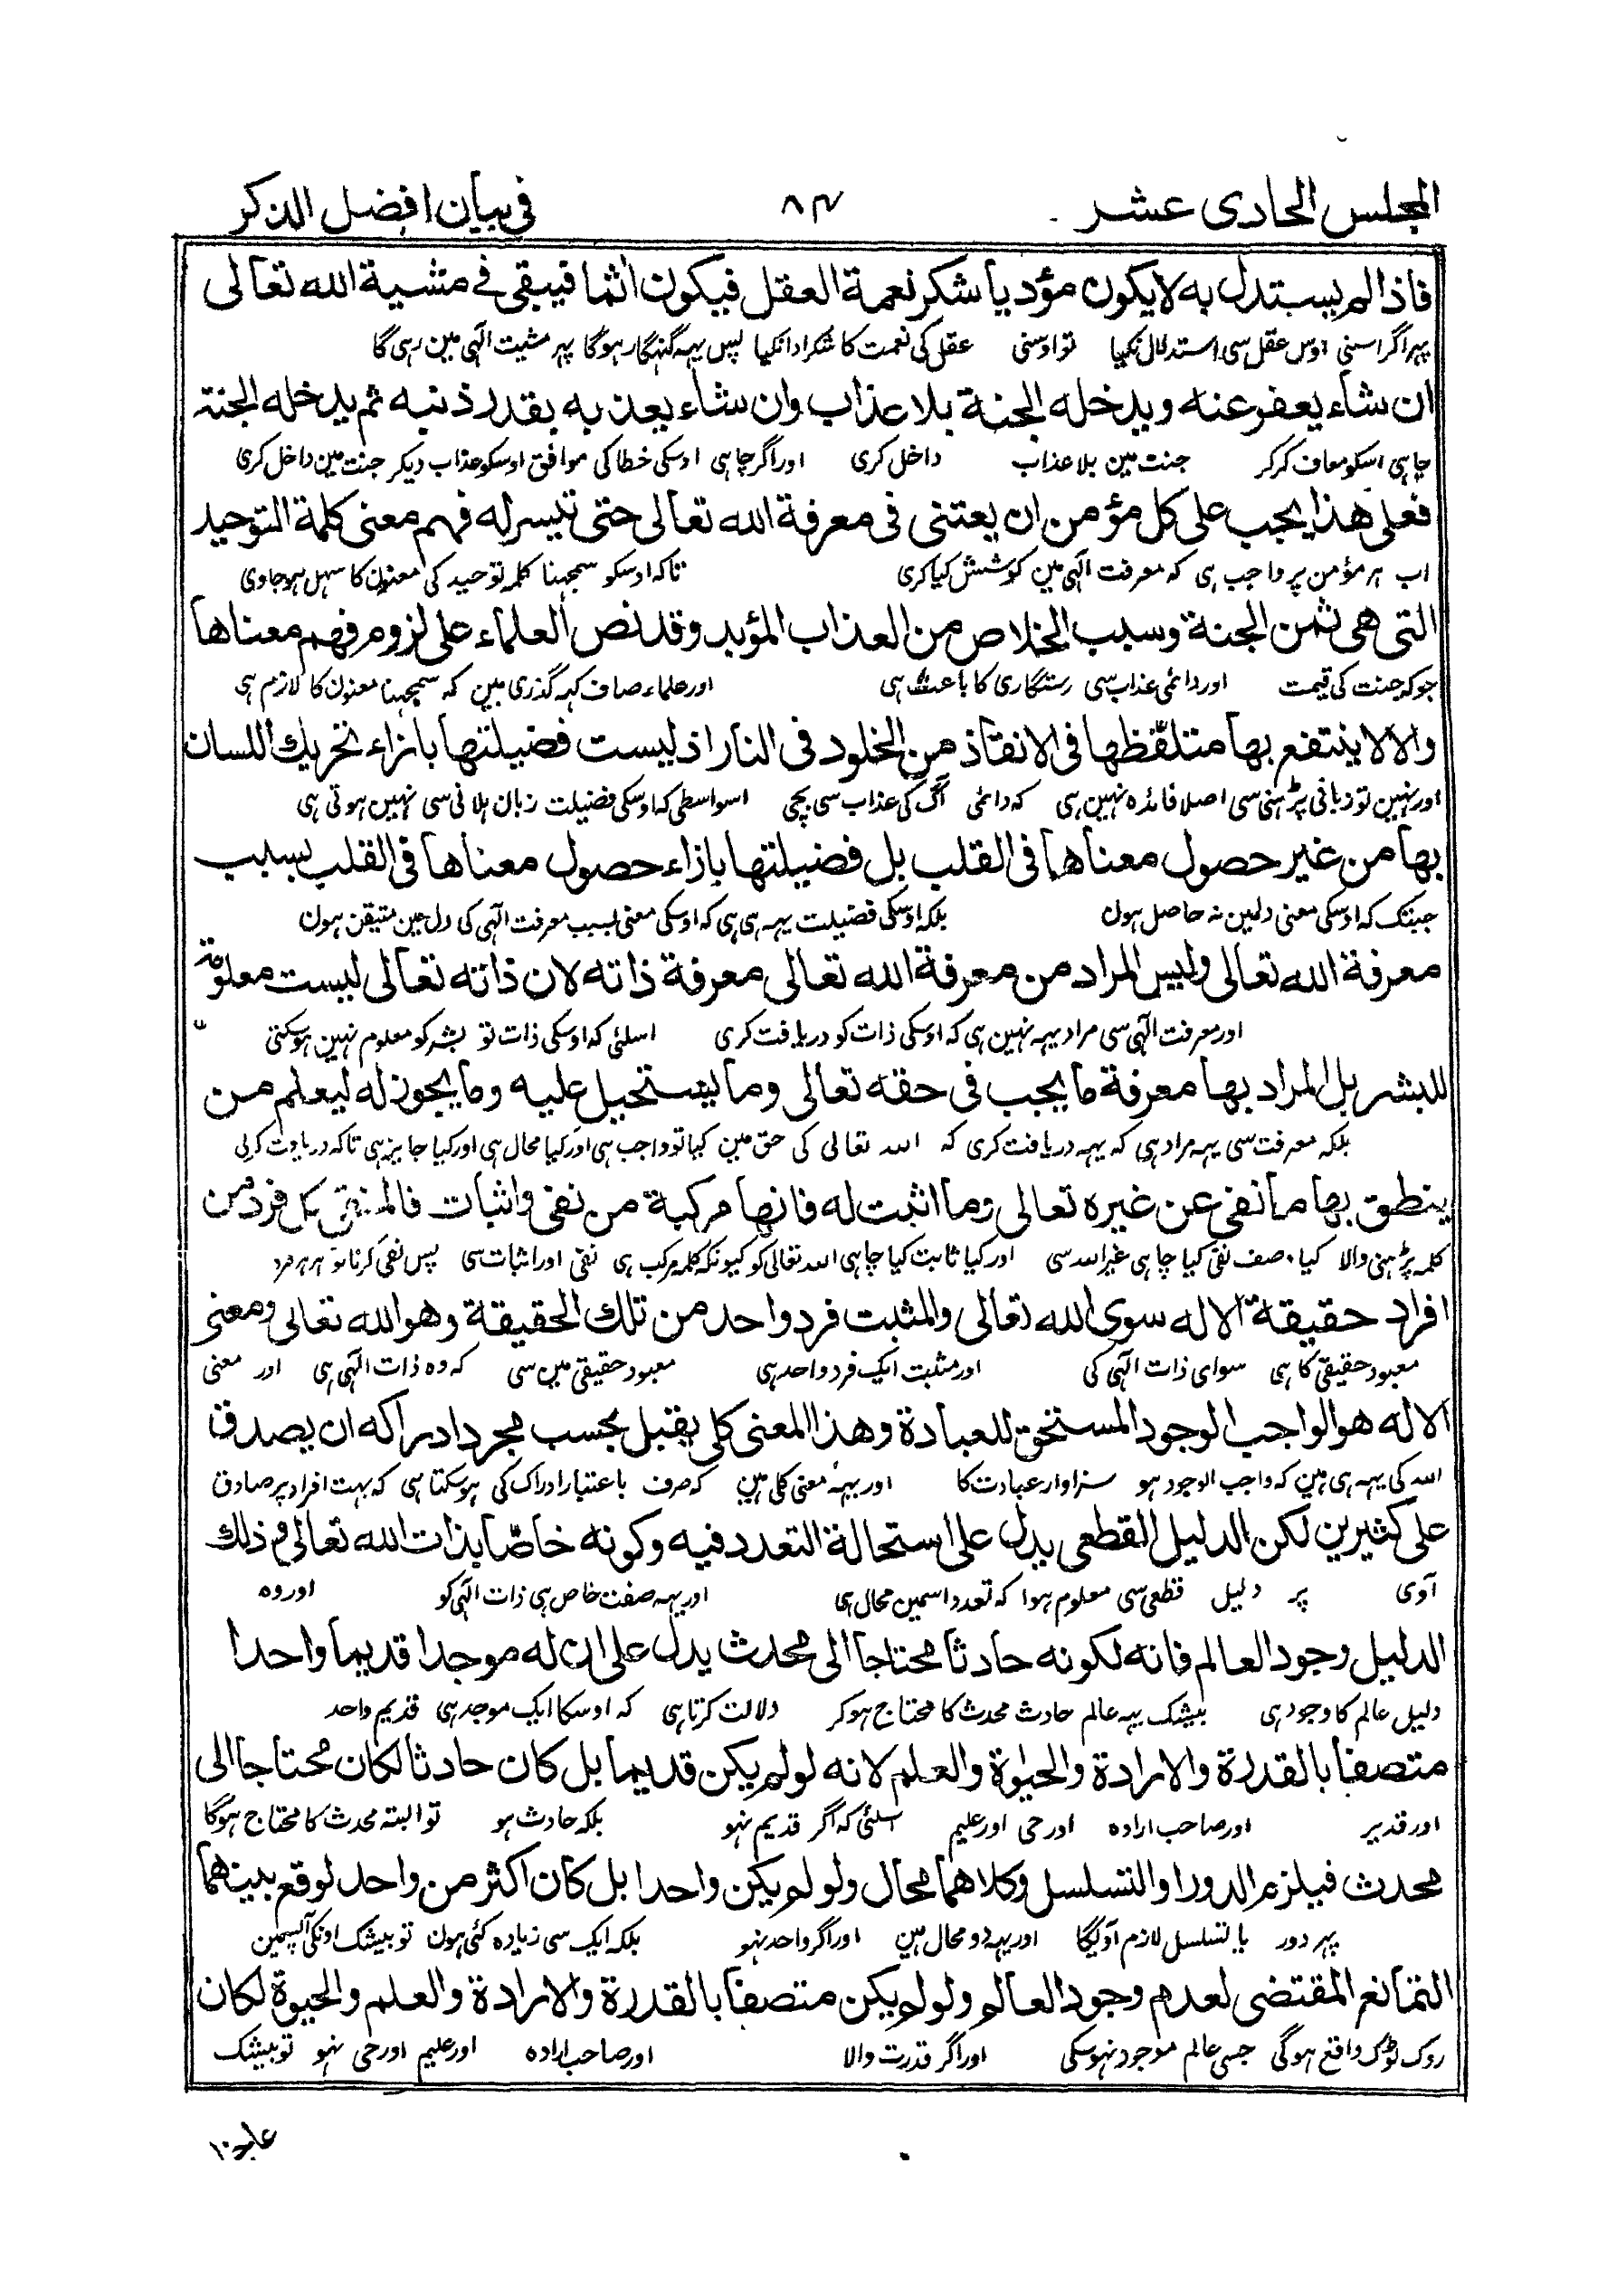 المجلس الحادى عشر ۸۴ فى بيان افضل الذكر
فاذا لم يستدل به لا يكون مؤديا شكر نعمة العقل فيكون اثما فيبقى فى مشية الله تعالى
پہر اگر اسنی اوس عقل سی استدلال نکیا تو اوسنی عقل کی نعمت کا شکر ادا نکیا پس یہہ گنہگار ہوگا پہر مشیت الٰہی مین رہی گا
ان شاء يعفر عنه ويدخله الجنة بلا عذاب وان شاء يعذبه بقدر ذنبه ثم يدخله الجنة
چاہی اسکو معاف کرکر جنت مین بلا عذاب داخل کری اور اگر چاہی اوسکی خطا کی موافق اوسکو عذاب دیکر جنت مین داخل کری
فعلى هذا يجب على كل مؤمن ان يعتنى فى معرفة الله تعالى حتى تيسر له فهم معنى كلمة التوحيد
اب ہر مؤمن پر واجب ہی کہ معرفت الٰہی مین کوشش کیا کری تاکہ اوسکو سمجہنا کلمہ توحید کی معنون کا سہل ہو جاوی
التى هى ثمن الجنة وسبب الخلاص من العذاب المؤبد وقد نص العلماء على لزوم فهم معناها
جو کہ جنت کی قیمت اور دائمی عذاب سی رستگاری کا باعث ہی اور علماء صاف کہہ گذری ہین کہ سمجہنا معنون کا لازم ہی
والا لا ينتفع بها متلفظها فى الانقاذ من الخلود فى النار اذ ليست فضيلتها بازاء تحريك اللسان
اور نہین تو زبانی پڑہنی سی اصلا فائدہ نہین ہی کہ دائمی آگ کی عذاب سی بچی اسواسطی کہ اوسکی فضیلت زبان ہلانی سی نہین ہوتی ہی
بها من غير حصول معناها فى القلب بل فضيلتها بازاء حصول معناها فى القلب بسبب
جبتک کہ اوسکی معنی دلمین نہ حاصل ہون بلکہ اوسکی فضیلت یہہ ہی ہی کہ اوسکی معنی بسبب معرفت الٰہی کی دل مین متیقن ہون
معرفة الله تعالى وليس المراد من معرفة الله تعالى معرفة ذاته لان ذاته تعالى ليست معلومة
اور معرفت الٰہی سی مراد یہہ نہین ہی کہ اوسکی ذات کو دریافت کری اسلئی کہ اوسکی ذات تو بشر کو معلوم نہین ہو سکتی
للبشر بل المراد بها معرفة ما يجب فى حقه تعالى وما يستحيل عليه وما يجوز له ليعلم من
بلکہ معرفت سی یہہ مراد ہی کہ یہہ دریافت کری کہ الله تعالی کی حق مین کیا تو واجب ہی اور کیا محال ہی اور کیا جایز ہی تاکہ دریافت کرلی
ينطق بها ما نفى عن غيره تعالى وما اثبت له فانها مركبة من نفى واثبات فالمنفى كل فرد من
کلمہ پڑہنی والا کیا وصف نفی کیا چاہی غیر الله سی اور کیا ثابت کیا چاہی الله تعالی کو کیونکہ کلمہ مرکب ہی نفی اور اثبات سی پس نفی کرنا تو ہر ہر فرد
افراد حقيقة الاله سوى الله تعالى والمثبت فرد واحد من تلك الحقيقة وهو الله تعالى ومعنى
معبود حقیقی کا ہی سوای ذات الٰہی کی اور مثبت ایک فرد واحد ہی معبود حقیقی مین سی کہ وہ ذات الٰہی ہی اور معنی
الاله هو الواجب الوجود المستحق للعبادة وهذا المعنى كلى يقبل بحسب مجرد ادراكه ان يصدق
الله کی یہہ ہی ہین کہ واجب الوجود ہو سزاوار عبادت کا اور یہہ معنی کلی ہین کہ صرف باعتبار ادراک کی ہو سکتا ہی کہ بہت افراد پر صادق
على كثيرين لكن الدليل القطعى يدل على استحالة التعدد فيه وكونه خاصا بذات الله تعالى وذلك
آوی پر دلیل قطعی سی معلوم ہوا کہ تعدد اسمین محال ہی اور یہہ صفت خاص ہی ذات الٰہی کو اور وہ
الدليل وجود العالم فانه لكونه حادثا محتاجا الى محدث يدل على ان له موجدا قديما واحدا
دلیل عالم کا وجود ہی بیشک یہہ عالم حادث محدث کا محتاج ہو کر دلالت کرتا ہی کہ اوسکا ایک موجد ہی قدیم واحد
متصفا بالقدرة والارادة والحيوة والعلم لانه لو لم يكن قديما بل كان حادثا لكان محتاجا الى
اور قدیر اور صاحب ارادہ اور حی اور علیم اسلئی کہ اگر قدیم نہو بلکہ حادث ہو تو البتہ محدث کا محتاج ہوگا
محدث فيلزم الدور او التسلسل وكلاهما محال ولو لم يكن واحدا بل كان اكثر من واحد لوقع بينهما
پہر دور یا تسلسل لازم آویگا اور یہہ دو محال ہین اور اگر واحد نہو بلکہ ایک سی زیادہ کئی ہون تو بیشک اونکی آپسمین
التمانع المقتضى لعدم وجود العالم ولو لم يكن متصفا بالقدرة والارادة والعلم والحيوة لكان
روک ٹوک واقع ہوگی جسی عالم موجود نہو سکی اور اگر قدرت والا اور صاحب ارادہ اور علیم اور حی نہو تو بیشک
عاجزا